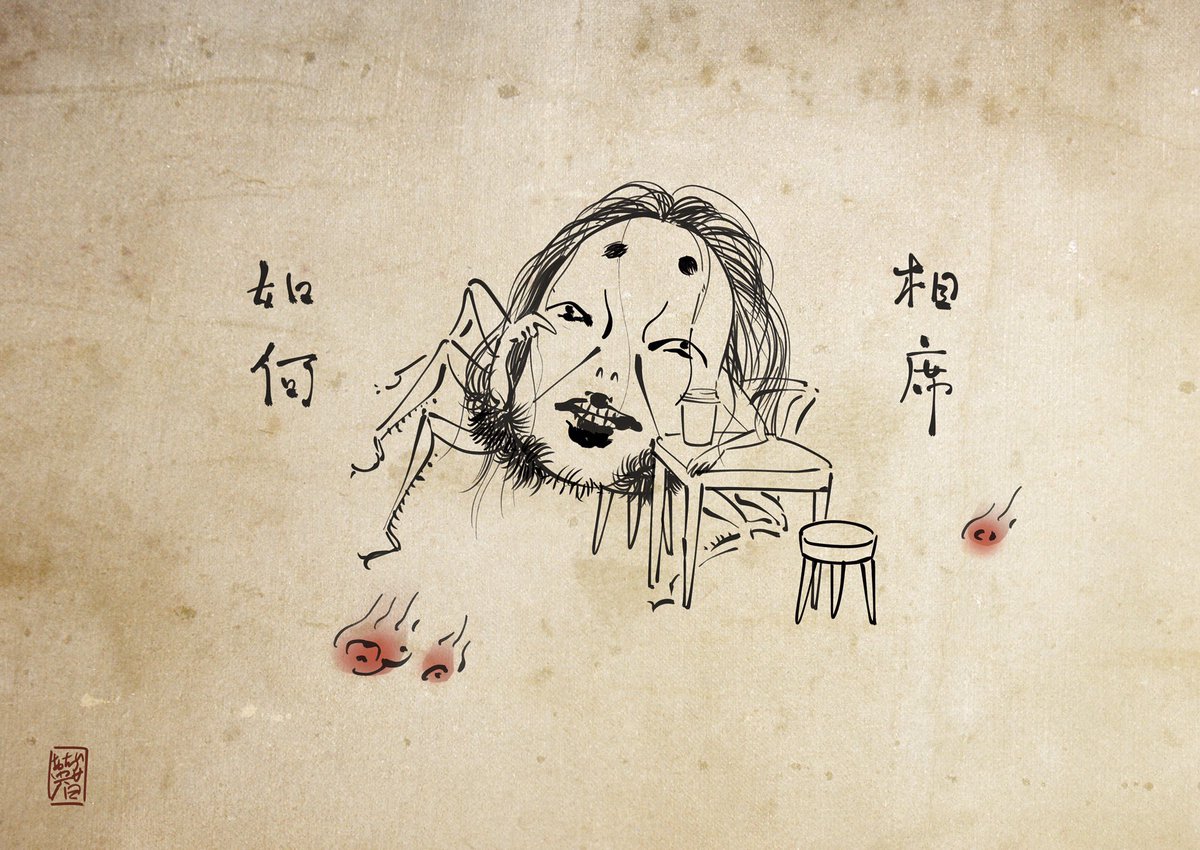 相席
如何